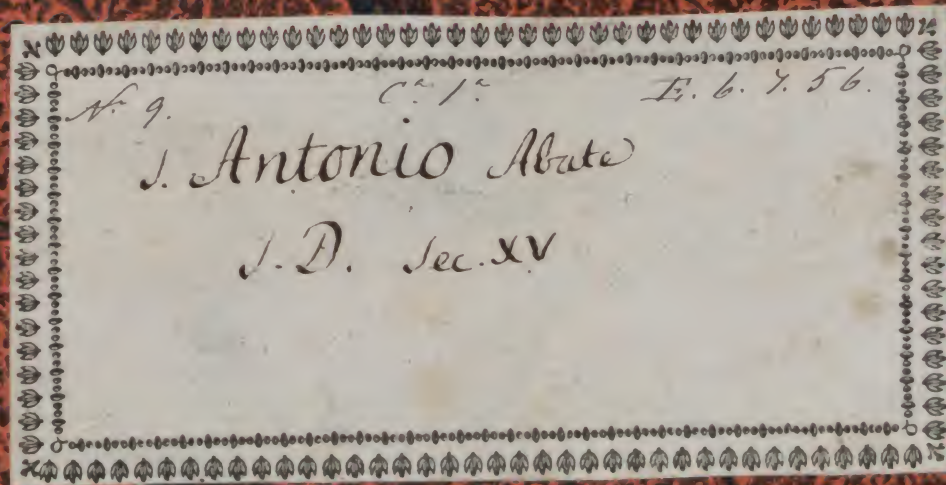 N.º 9. C.ª 1.ª E. 6. 7. 56.
S. Antonio Abate
S. D. Sec. XV